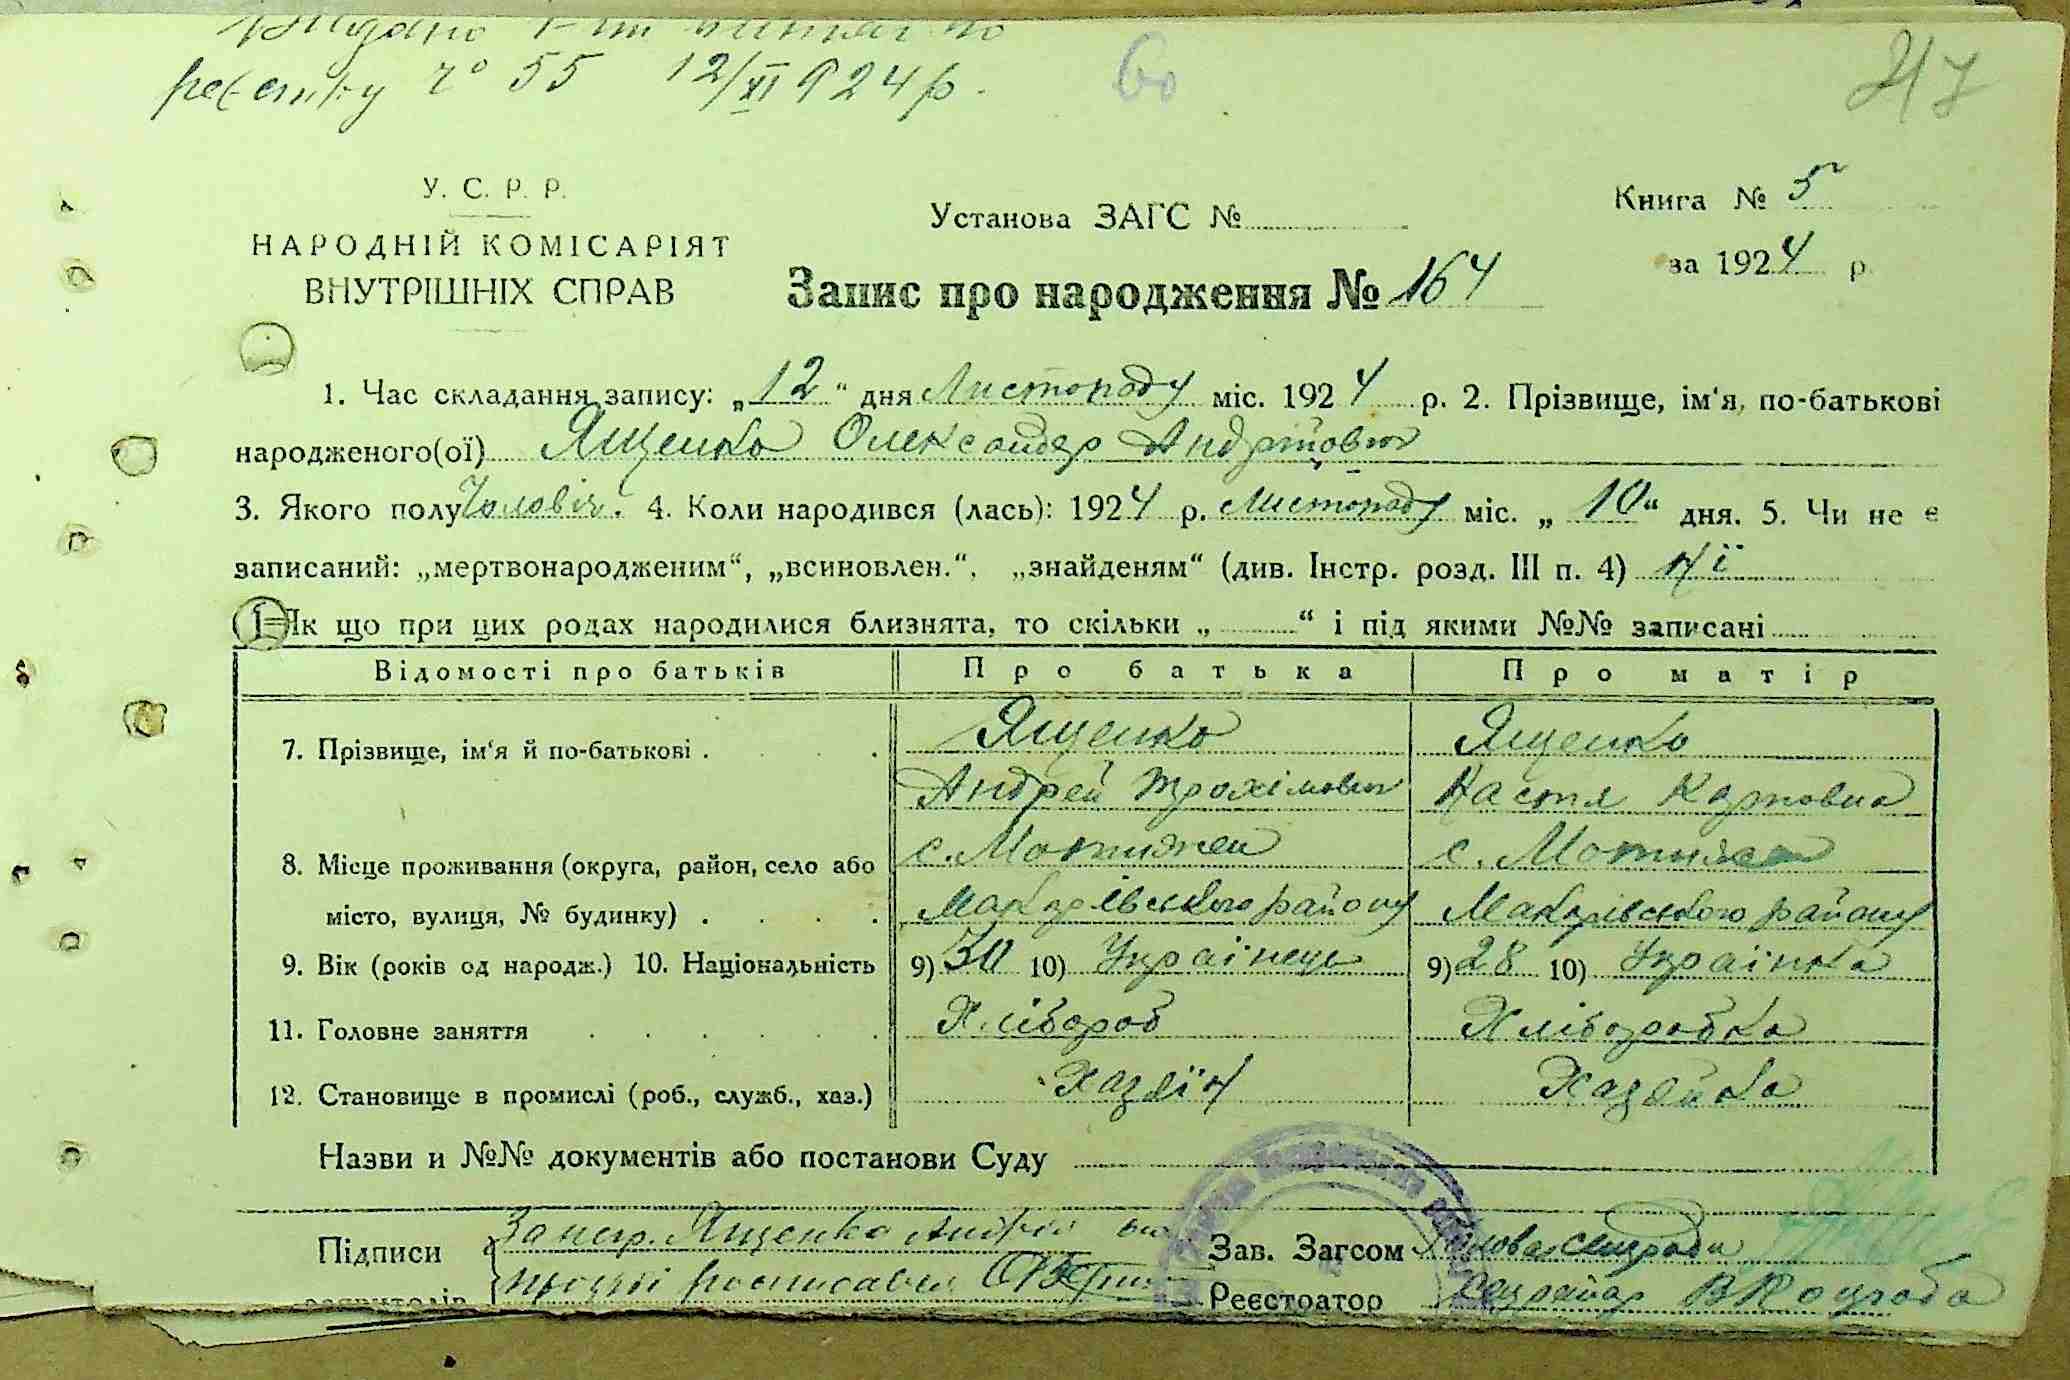 реєстру № 55 12/XI 924 р.
У. С. Р. Р.
НАРОДНІЙ КОМІСАРІЯТ
ВНУТРІШНІХ СПРАВ
Установа ЗАГС №
Книга № 5
за 1924 р
Запис про народження № 164
1. Час складання запису: „12“ дня Листопаду міс. 1924 р. 2. Прізвище, ім‘я, по-батькові
народженого(ої) Ященко Олександер Андрійович
3. Якого полу Чоловіч. 4. Коли народився (лась): 1924 р. Листопаду міс. „10“ дня. 5. Чи не є
записаний: „мертвонародженим“, „всиновлен.“, „знайденям“ (див. Інстр. розд. III п. 4) Нї
Як що при цих родах народилися близнята, то скільки „ “ і під якими №№ записані
Відомості про батьків Про батька Про матір
7. Прізвище, ім‘я й по-батькові . Ященко Ященко
Андрей Трохімович Настя Карповна
с. Мотижен с. Мотижен
8. Місце проживання (округа, район, село або
місто, вулиця, № будинку) . Макарівського району Макарівського району
9. Вік (років од народж.) 10. Національність 9) 30 10) Українець 9) 28 10) Українка
11. Головне заняття Хлібороб Хліборобка
12. Становище в промислі (роб., служб., хаз.) Хазяїн Хазяйка
Назви и №№ документів або постанови Суду
Підписи За негр. Ященко Андрія
росписався Зав. Загсом Голова сільради
Реєстратор секретар